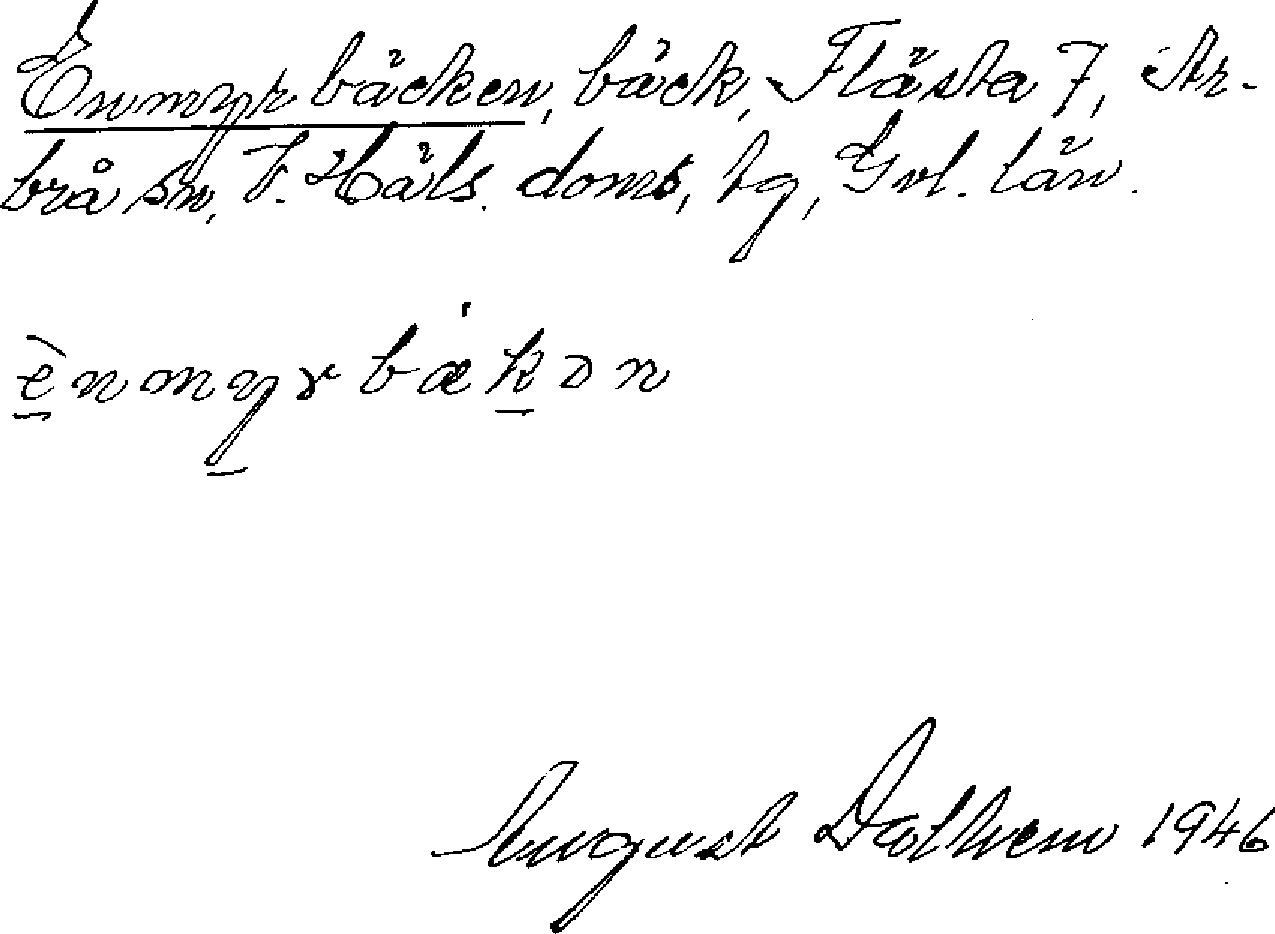 Enmyrbäcken, bäck, Flästa 7, Ar-
brå sn, V. Häls. doms, tg, Gvl. län.
ènmyrbækən
August Dalhem 1946